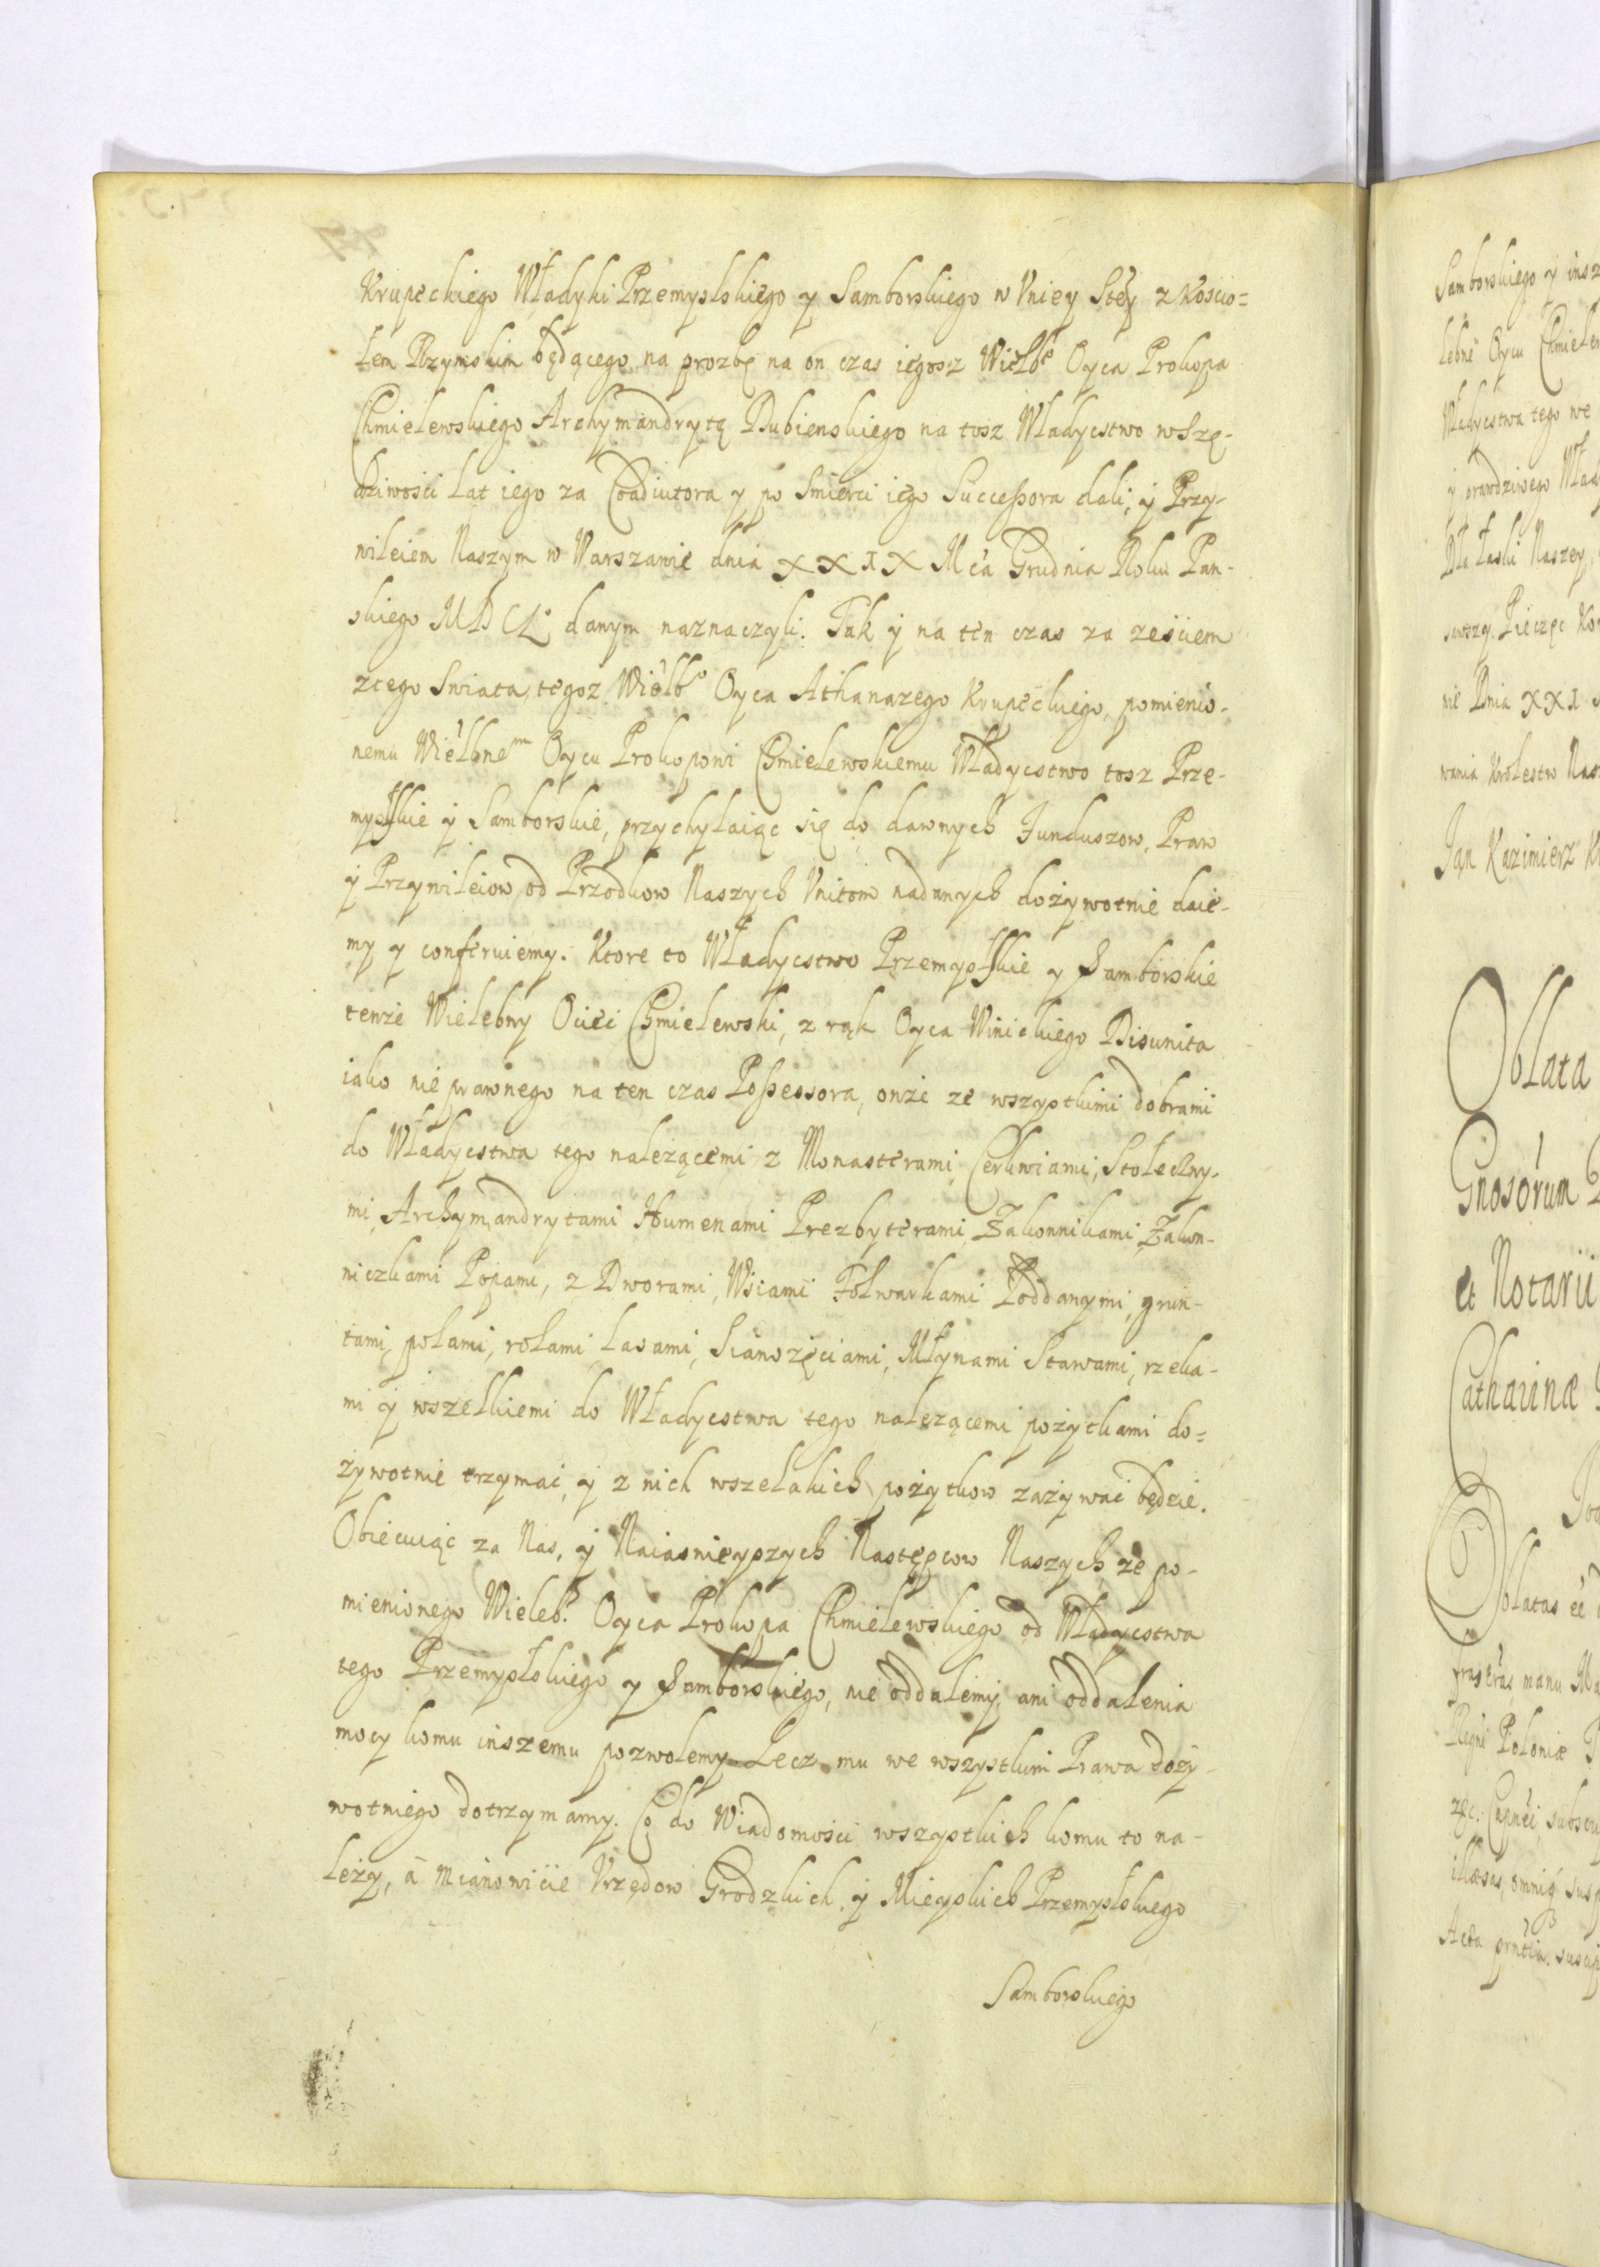 Krupeckiego Władyki Przemyslskiego y Samborskiego w Vniey Stey z Koscio=
łem Rzymskim będącego na prozbę na on czas iegosz Wielbᵉ Oyca Prokopa
Chmielewskiego Archymandrytę Dubienskiego na tosz Władycstwo w Szę-
dziwości lat iego za Coadiutora y po Smierci iego Successora dali, ÿ Przy-
wileiem Naszym w Warszawie dnia XXIX Mca Grudnia Roku Pan-
skiego MDCL° danym naznaczyli. Tak ÿ na ten czas za ześciem
ztego Swiata, tegoz Wielb° Oyca Athanazego Krupeckiego, pomienio-
nemu Wielbneᵐ Oycu Prokopowi Chmielewskiemu Władycstwo tosz Prze-
myslskie ÿ Samborskie, przychylaiąc się do dawnych Funduszow, Praw
ÿ Przywileiow od Przodkow Naszych Vnitom nadanych dożywotnie daie-
my y conferuiemy. Ktore to Władycstwo Przemyslskie y Samborskie
tenże Wielebny Ociec Chmielewski, z rąk Oyca Winickiego Disunita
iako nie prawnego na ten czas Possessora, onże ze wszystkimi dobrami
do Władycstwa tego należącemi z Monasterami, Cerkwiami, Stołeczny-
mi, Archymandrytami Humenami Prezbyterami, Zakonnikami Zakon-
niczkami Popami, z Dworami, Wsiami Folwarkami Poddanymi, grun-
tami, polami, rolami lasami, Sianożęciami, Młynami Stawami, rzeka-
mi ÿ wszelkiemi do Władycstwa tego należącemi pożytkami do=
żywotnie trzymać, ÿ z nich wszelakich pożytkow zażywać będzie.
Obiecuiąc za Nas, ÿ Naiasnieyszych Następcow Naszych, że po-
mienionego Wieleb° Oyca Prokopa Chmielewskiego od Władycstwa
tego Przemyslskiego y Samborskiego, nie oddalemy, ani oddalenia
mocy komu inszemu pozwolemy Lecz mu we wszystkim Prawa doży-
wotniego dotrzymamy. Co do Wiadomości wszystkich komu to na-
leży, a mianowicie Vrzędow Grodzkich. ÿ Mieyskich Przemyslskiego
Samborskiego
Samborskiego ÿ insz
Oycu Chmielew
Władycstwa tego we
y prawdziwego Wład
łaski Naszey
Pieczęć Ko
nie Dnia XXI
wania Krolestw Nas
Jan Kazimierz K
Oblata
Gnosorum
et Notarii
Catharinæ
Oblatas
manu
Regni Poloniæ
illæsas, omniq susp
Acta